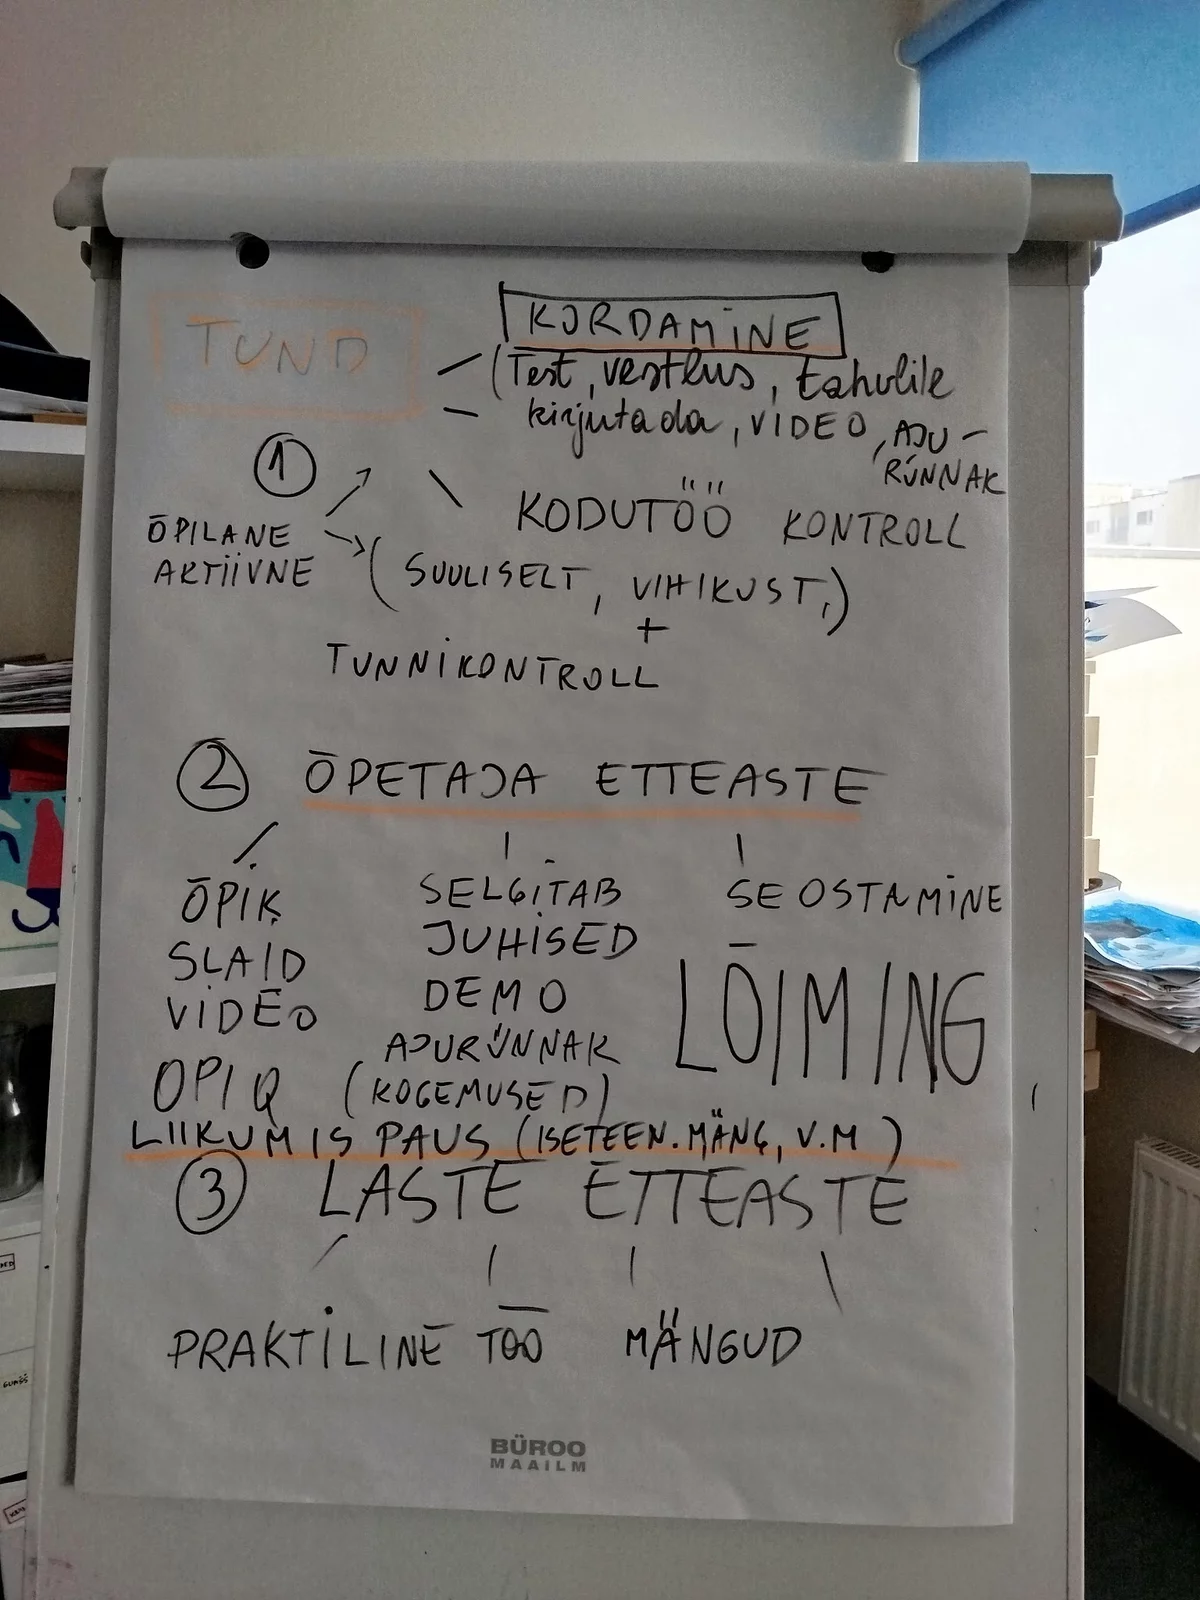 TUND
KORDAMINE
(Test, vestlus, tahvlile
kirjutada, VIDEO, AJU-
RÜNNAK
1
KODUTÖÖ KONTROLL
ÕPILANE
AKTIIVNE
(SUULISELT, VIHIKUST,)
+
TUNNIKONTROLL
2 ÕPETAJA ETTEASTE
ÕPIK
SLAID
VIDEO
OPIQ
SELGITAB
JUHISED
DEMO
AJURÜNNAK
(KOGEMUSED)
SEOSTAMINE
LÕIMING
LIIKUMIS PAUS (ISETEEN. MÄNG, V.M)
3 LASTE ETTEASTE
PRAKTILINE TÖÖ MÄNGUD
BÜROO
MAAILM